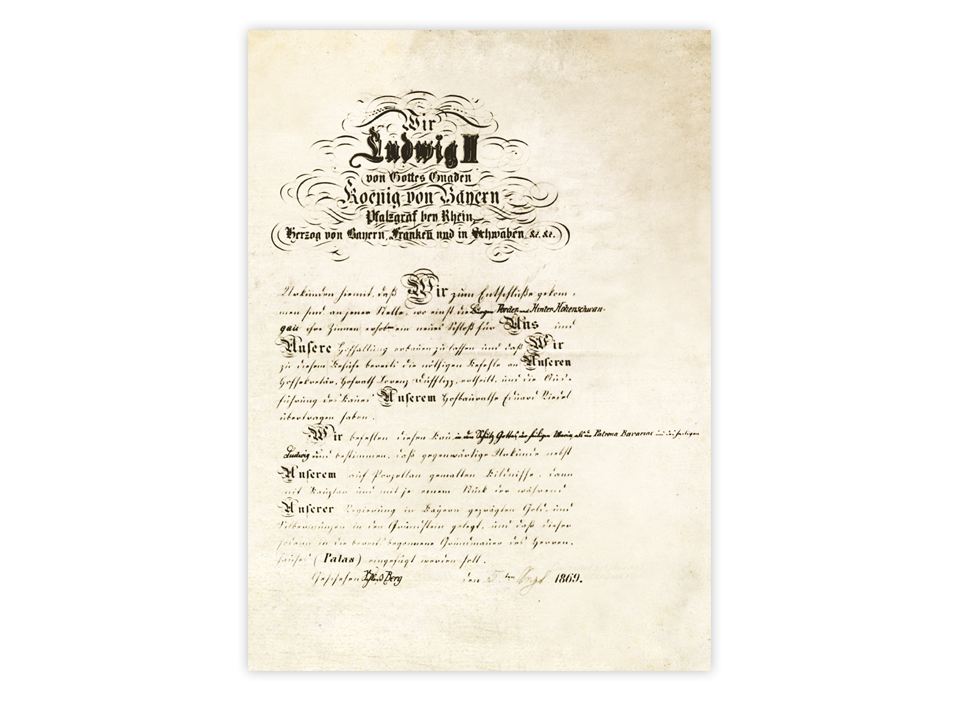 Wir
Ludwig II
von Gottes Gnaden
Koenig von Bayern
Pfalzgraf bey Rhein,
Herzog von Bayern, Franken und in Schwaben &c. &c.
Urkunden hiemit, daß Wir zum Entschluße gekom-
men sind an jener Stelle, wo einst die Burgen Vorder und Hinter Hohenschwan-
gau ihre Zinnen erhoben ein neues Schloß für Uns und
Unsere Hofhaltung erbauen zu lassen und daß Wir
zu diesem Behufe bereits die nöthigen Befehle an Unseren
Hofsekretär, Hofrath Lorenz Düfflipp, ertheilt, und die Aus-
führung des Baues Unserem Hofbaurathe Eduard Riedel
übertragen haben.
Wir befehlen diesen Bau in den Schutz Gottes, der heiligen Maria, als der Patrona Bavariae und des heiligen
Ludwig und bestimmen, daß gegenwärtige Urkunde nebst
Unserem auf Porzellan gemalten Bildnisse, dann
mit Bauplan und mit je einem Stück der während
Unserer Regierung in Bayern geprägten Gold und
Silbermünzen in den Grundstein gelegt, und daß dieser
sodann in die bereits begonnene Grundmauer des Herren-
hauses (Palas) eingefügt werden soll.
Geschehen Schloß Berg den 5 ten Sept 1869.